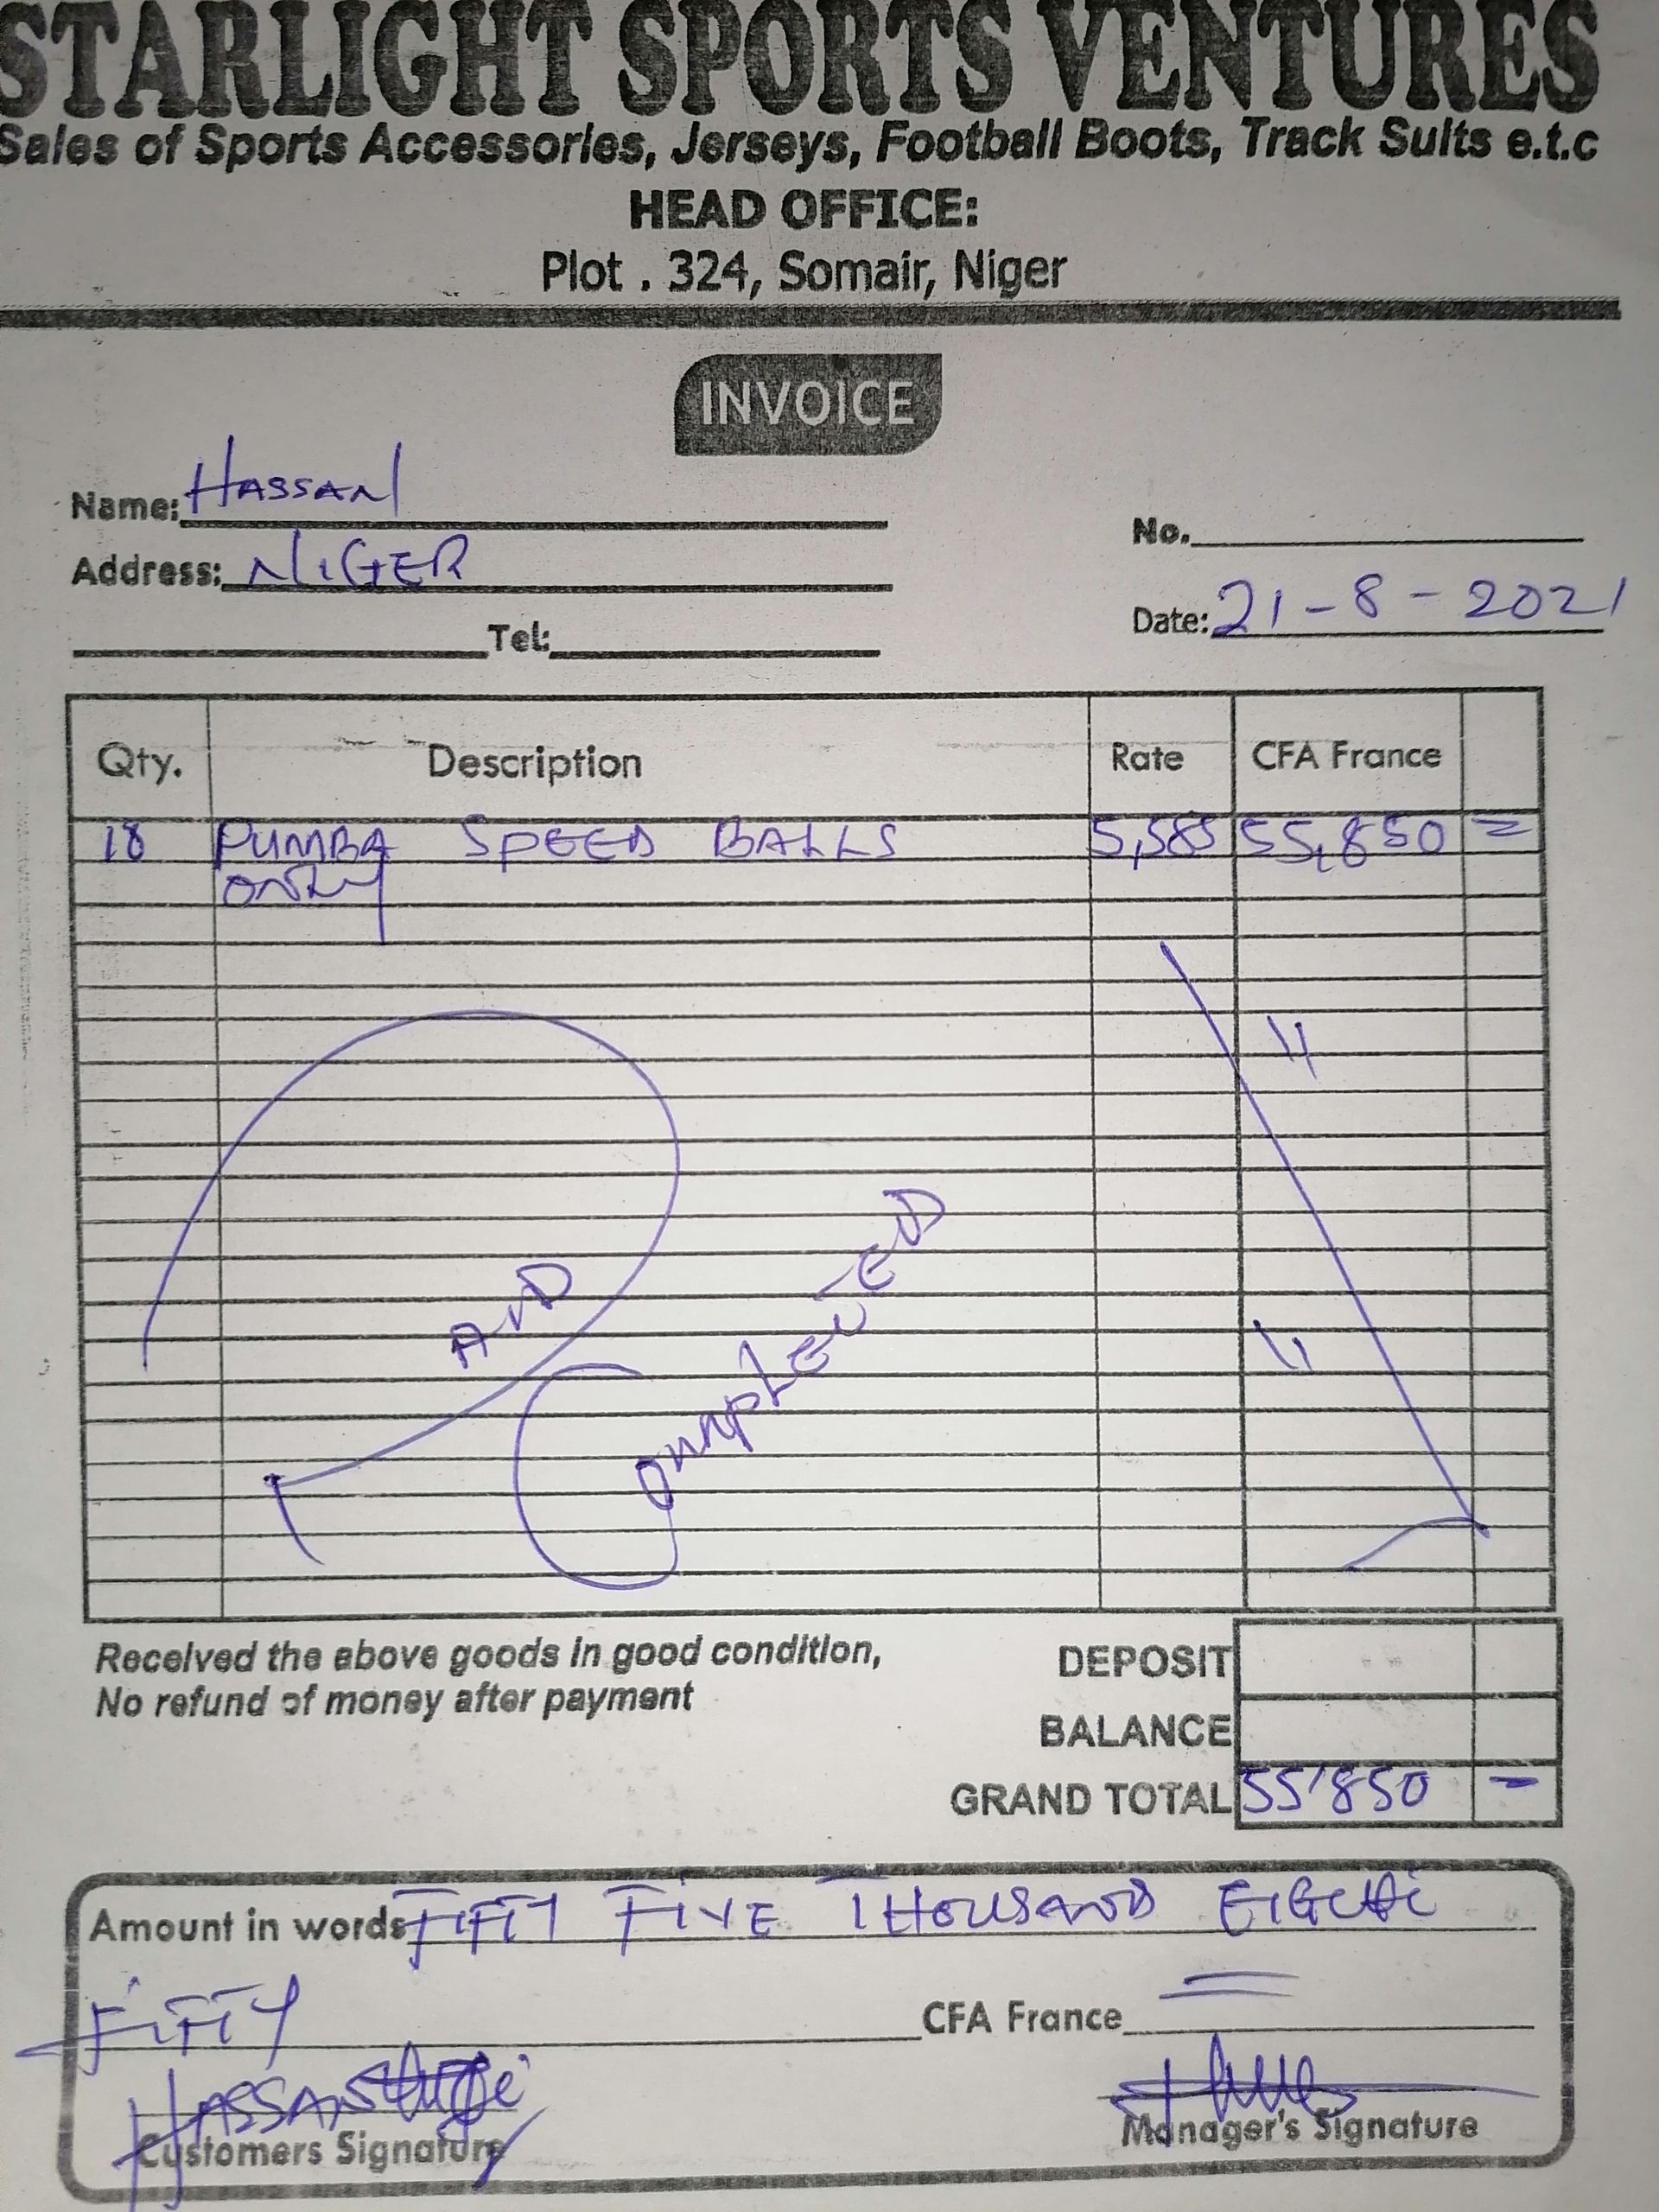 STARLIGHT SPORTS VENTURES
Sales of Sports Accessories, Jerseys, Football Boots, Track Suits e.t.c
HEAD OFFICE:
Plot . 324, Somair, Niger
INVOICE
Name: HASSAN
No.
Address: NIGER
Date: 21-8-2021
Tel:
Qty. Description Rate CFA France
18 PUMBA SPEED BALLS 5,585 55,850 =
ONLY
AND
Received the above goods in good condition,
No refund of money after payment
DEPOSIT
BALANCE
GRAND TOTAL 55'850 =
Amount in words FIFTY FIVE THOUSAND
FIFTY
CFA France
HASSAN
Customers Signature
Manager's Signature